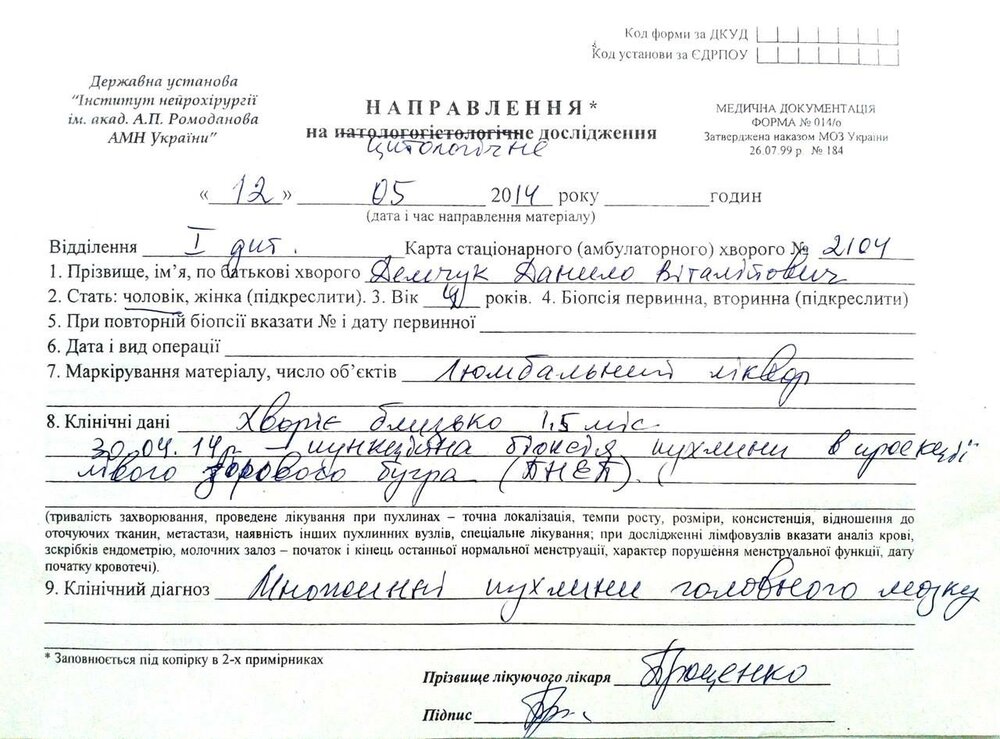 Код форми за ДКУД
Код установи за ЄДРПОУ
Державна установа
“Інститут нейрохірургії
ім. акад. А.П. Ромоданова
АМН України”
НАПРАВЛЕННЯ*
на патологогістологічне дослідження
цитологічне
МЕДИЧНА ДОКУМЕНТАЦІЯ
ФОРМА № 014/о
Затверджена наказом МОЗ України
26.07.99 р. № 184
« 12 » 05 2014 року годин
(дата і час направлення матеріалу)
Відділення I дит. Карта стаціонарного (амбулаторного) хворого № 2104
1. Прізвище, ім’я, по батькові хворого Демчук Данило Віталійович
2. Стать: чоловік, жінка (підкреслити). 3. Вік років. 4. Біопсія первинна, вторинна (підкреслити)
5. При повторній біопсії вказати № і дату первинної
6. Дата і вид операції
7. Маркірування матеріалу, число об’єктів Люмбальний ліквор
8. Клінічні дані Хворіє близько 1,5 міс.
30.04.14р. – пункційна біопсія пухлини в проекції
лівого зорового бугра (ПНЕП).
(тривалість захворювання, проведене лікування при пухлинах – точна локалізація, темпи росту, розміри, консистенція, відношення до
оточуючих тканин, метастази, наявність інших пухлинних вузлів, спеціальне лікування; при дослідженні лімфовузлів вказати аналіз крові,
зскрібків ендометрію, молочних залоз – початок і кінець останньої нормальної менструації, характер порушення менструальної функції, дату
початку кровотечі).
9. Клінічний діагноз Множинні пухлини головного мозку
* Заповнюється під копірку в 2-х примірниках
Прізвище лікуючого лікаря Проценко
Підпис